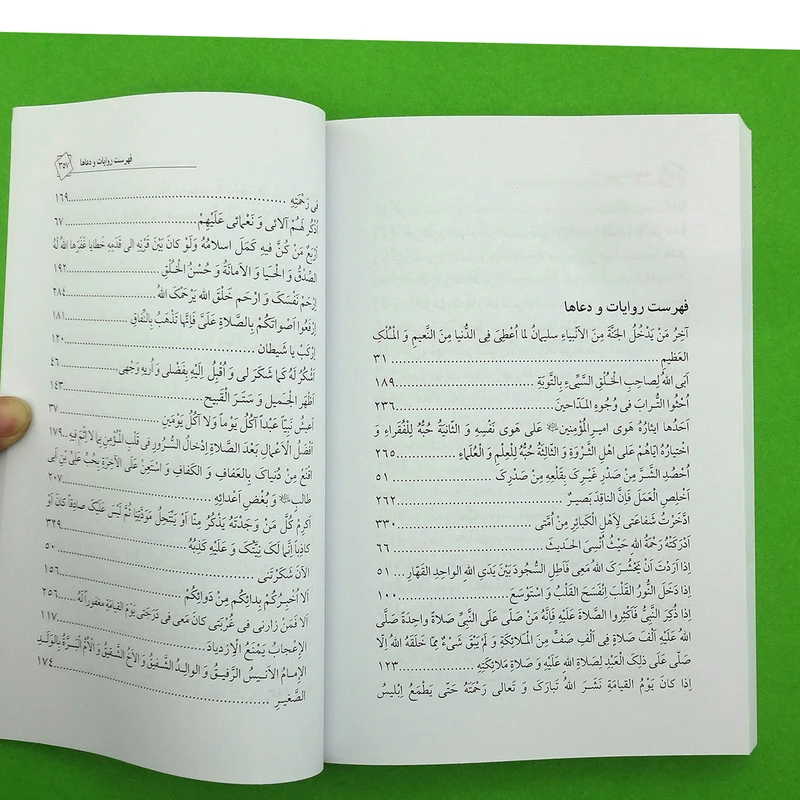 فهرست روایات و دعاها
آخِرُ مَنْ یَدْخُلُ الجَنَّةَ مِنَ الأنبیاءِ سلیمانُ لما اُعْطِیَ فِی الدُّنیا مِنَ النَّعیمِ وَ المُلْکِ
العَظیمِ ۳۱
اَبَی اللهُ لِصاحِبِ الخُلْقِ السَّیِّیءِ بِالتَّوبَةِ ۱۸۹
اُحْثُوا التُّرابَ فی وُجُوهِ المَدّاحینَ ۲۳۶
اَحَدُها ایثارُهُ هَوی امیرِالمؤمنین علی هَوی نَفْسِهِ وَ الثّانیَةُ حُبُّهُ لِلْفُقَراءِ وَ
اخْتِیارُهُ اِیّاهُمْ عَلی اهْلِ الثَّرْوَةِ وَ الثّالِثَةُ حُبُّهُ لِلْعِلْمِ وَ الْعُلَماءِ ۲۶۵
اُحْصُدِ الشَّرَّ مِنْ صَدْرِ غَیْرِکَ بِقَلْعِهِ مِنْ صَدْرِکَ ۵۱
اَخلِصِ العَمَلَ فَاِنَّ الناقِدَ بَصیرٌ ۲۶۲
ادَّخَرْتُ شَفاعَتی لِاَهْلِ الکَبائِرِ مِنْ اُمَّتی ۳۳۰
اَدْرَکَتْهُ رَحْمَةُ اللهِ حَیْثُ اُنْسِیَ الحَدیثَ ۶۶
اِذا اَرَدْتَ اَنْ یَحْشُرَکَ اللهُ مَعِی فَاَطِلِ السُّجُودَ بَیْنَ یَدَیِ اللهِ الواحِدِ القَهّارِ ۵۱
اِذا دَخَلَ النُّورُ القَلْبَ اِنْفَسَحَ القَلْبُ وَ اسْتَوْسَعَ ۱۰۰
اِذا ذُکِرَ النَّبِیُّ فَاَکْثِرُوا الصَّلاةَ عَلَیْهِ فَاِنَّهُ مَنْ صَلّی عَلَی النَّبِیِّ صَلاةً واحِدَةً صَلَّی
اللهُ عَلَیْهِ اَلْفَ صَلاةٍ فِی اَلْفِ صَفٍّ مِنَ المَلائِکَةِ وَ لَمْ یَبْقَ شَیْءٌ مِمّا خَلَقَهُ اللهُ اِلّا
صَلّی عَلی ذلِکَ الْعَبْدِ لِصَلاةِ اللهِ عَلَیْهِ وَ صَلاةِ مَلائِکَتِهِ ۱۲۳
اِذا کانَ یَوْمُ القیامَةِ نَشَرَ اللهُ تَبارَکَ وَ تَعالی رَحْمَتَهُ حَتّی یَطْمَعَ اِبْلیسُ
فهرست روایات و دعاها ۳۵۷
فی رَحْمَتِهِ ۱۶۹
اُذْکُر لَهُمْ آلائی وَ نَعْمائی عَلَیْهِمْ ۶۷
اَرْبَعٌ مَنْ کُنَّ فیهِ کَمَلَ اسلامُهُ وَلَوْ کانَ بَیْنَ قَرْنِهِ الی قَدَمِهِ خَطایا غَفَرَها اللهُ لَهُ
الصِّدْقُ وَ الحَیا وَ الاَمانَةُ وَ حُسْنُ الخُلْقِ ۱۹۲
اِرْحَمْ نَفْسَکَ وَ ارْحَمْ خَلْقَ اللهِ یَرْحَمْکَ اللهُ ۲۸۴
اِرْفَعُوا اَصْواتَکُمْ بِالصَّلاةِ عَلَیَّ فَاِنَّها تَذْهَبُ بِالنِّفاقِ ۱۸۱
اِرْکَبْ یا شَیطان ۱۲۰
اَشْکُرُ لَهُ کَما شَکَرَ لی وَ اُقْبِلُ اِلَیْهِ بِفَضْلی وَ اُریهِ وَجْهی ۴۶
اَظْهَرَ الجَمیلَ وَ سَتَرَ القَبیحَ ۱۴۳
اَعیشُ نَبِیّاً عَبْداً آکُلُ یَوْماً وَلا آکُلُ یَوْمَینِ ۳۷
اَفْضَلُ الْاَعْمالِ بَعْدَ الصَّلاةِ اِدْخالُ السُّرُورِ فی قَلْبِ المُؤْمِنِ بِما لا اِثْمَ فیهِ ۱۷۹
اقْنَعْ مِنْ دُنیاکَ بِالعَفافِ وَ الکَفافِ وَ اسْتَعِنْ عَلَی الآخِرَةِ بِحُبِّ عَلِیِّ بْنِ اَبی
طالبٍ وَ بُغْضِ اَعْدائِهِ ۲۰۷
اَکرِمْ کُلَّ مَنْ وَجَدْتَهُ یَذْکُرُ مِنّا اَوْ یَنْتَحِلُ مَوَدَّتَنا ثُمَّ لَیْسَ عَلَیْکَ صادِقاً کانَ اَوْ
کاذِباً اِنَّما لَکَ نِیَّتُکَ وَ عَلَیْهِ کِذْبُهُ ۳۲۹
الآنَ شَکَرْتَنی ۵۰
اَلا اُخبِرُکُمْ بِدائِکُم مِنْ دَوائِکُمْ ۱۵۶
اَلا فَمَنْ زارَنی فی غُرْبَتی کانَ مَعی فی دَرَجَتی یَوْمَ القیامَةِ مَغفوراً لَهُ ۲۵۶
الإعْجابُ یَمْنَعُ الاِزدیادَ ۱۱۷
الإمامُ الاَنیسُ الرَّفیقُ وَ الوالِدُ الشَّفیقُ وَ الاَخُ الشَّفیقُ وَ الاُمُّ البَرَّةُ بِالْوَلَدِ
الصَّغیرِ ۱۷۴